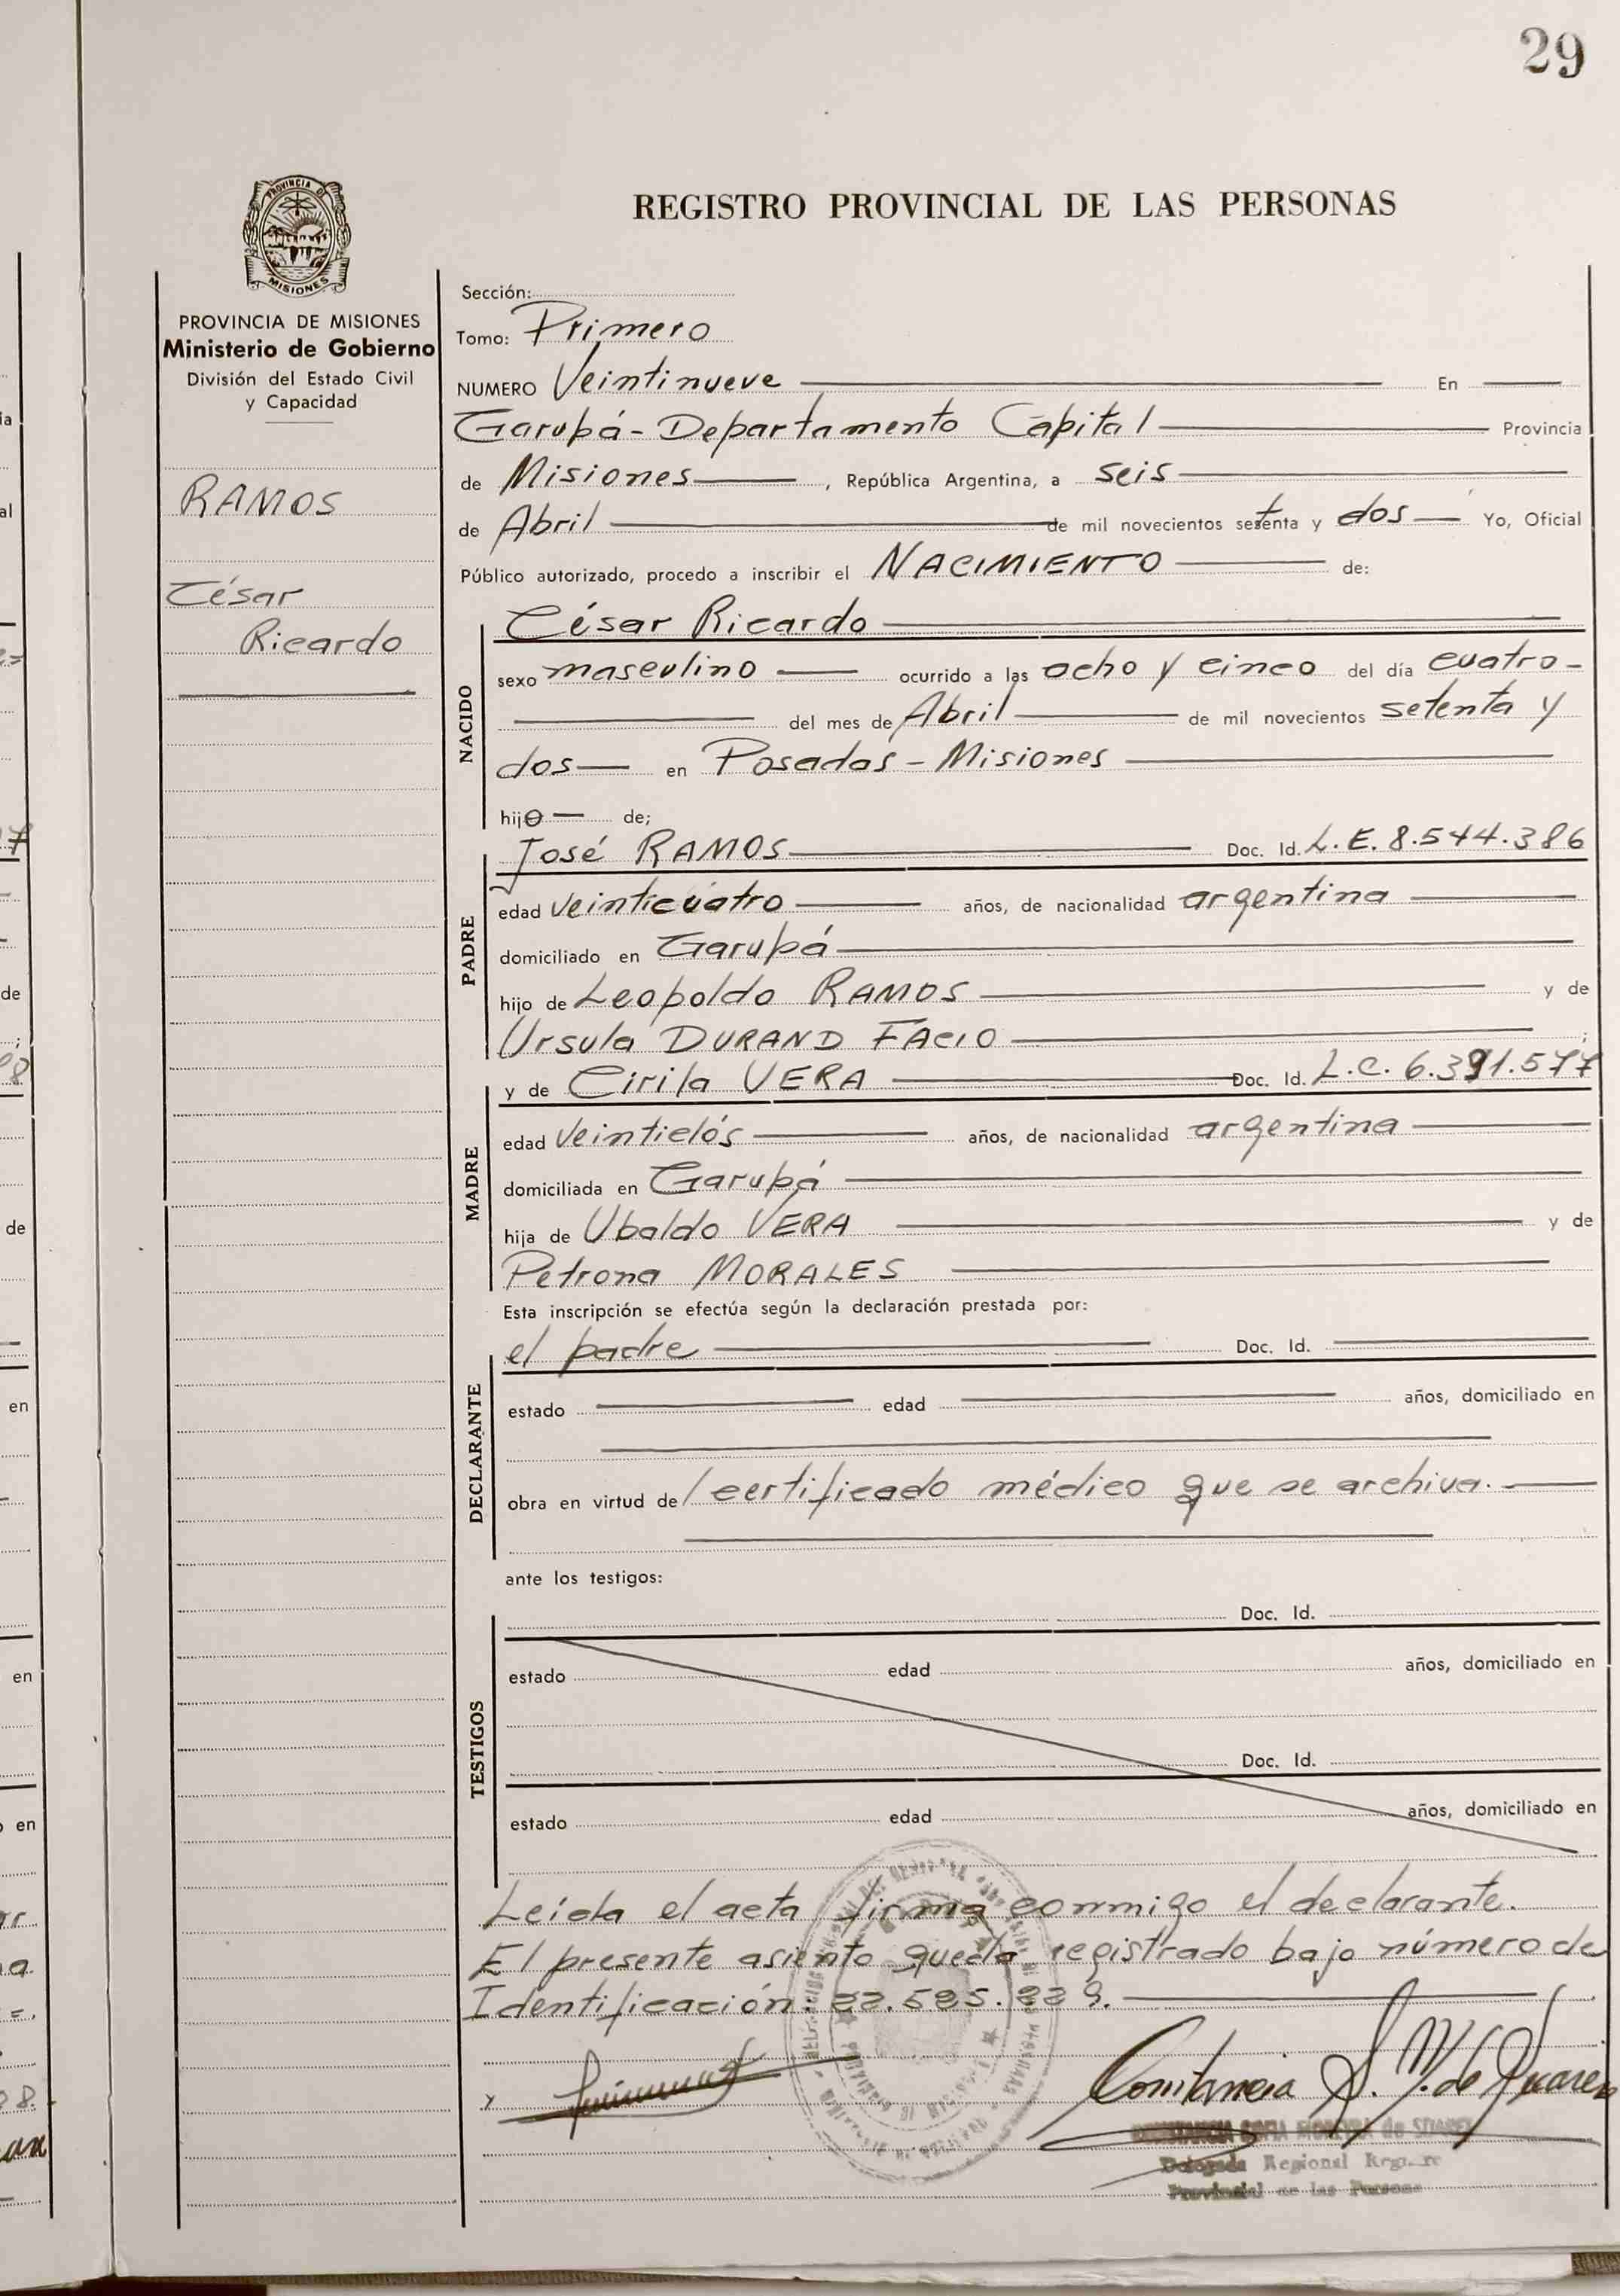 29
PROVINCIA DE
MISIONES
PROVINCIA DE MISIONES
Ministerio de Gobierno
División del Estado Civil
y Capacidad
RAMOS
César
Ricardo
REGISTRO PROVINCIAL DE LAS PERSONAS
Sección:
Tomo: Primero
NUMERO Veintinueve En
Garupá - Departamento Capital Provincia
de Misiones, República Argentina, a seis
de Abril de mil novecientos setenta y dos Yo, Oficial
Público autorizado, procedo a inscribir el NACIMIENTO de:
NACIDO
César Ricardo
sexo masculino ocurrido a las ocho y cinco del día cuatro
del mes de Abril de mil novecientos setenta y
dos en Posadas - Misiones
hijo de;
PADRE
José RAMOS Doc. Id. L.E. 8.544.386
edad veinticuatro años, de nacionalidad argentina
domiciliado en Garupá
hijo de Leopoldo RAMOS y de
Ursula DURAND FACIO ;
MADRE
y de Cirila VERA Doc. Id. L.C. 6.391.577
edad veintidós años, de nacionalidad argentina
domiciliada en Garupá
hija de Ubaldo VERA y de
Petrona MORALES
Esta inscripción se efectúa según la declaración prestada por:
DECLARANTE
el padre Doc. Id.
estado edad años, domiciliado en
obra en virtud de/certificado médico que se archiva.
ante los testigos:
TESTIGOS
Doc. Id.
estado edad años, domiciliado en
Doc. Id.
estado edad años, domiciliado en
Leída el acta firma conmigo el declarante.
El presente asiento queda registrado bajo número de
Identificación: 22.525.229.
Constancia S. M. de Suarez
CONSTANCIA SOFIA MOREYRA de SUAREZ
Delegada Regional
Provincial de las Persona